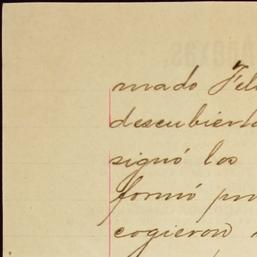 mado Fel
descubierto
signó los
formó pr
cogieron